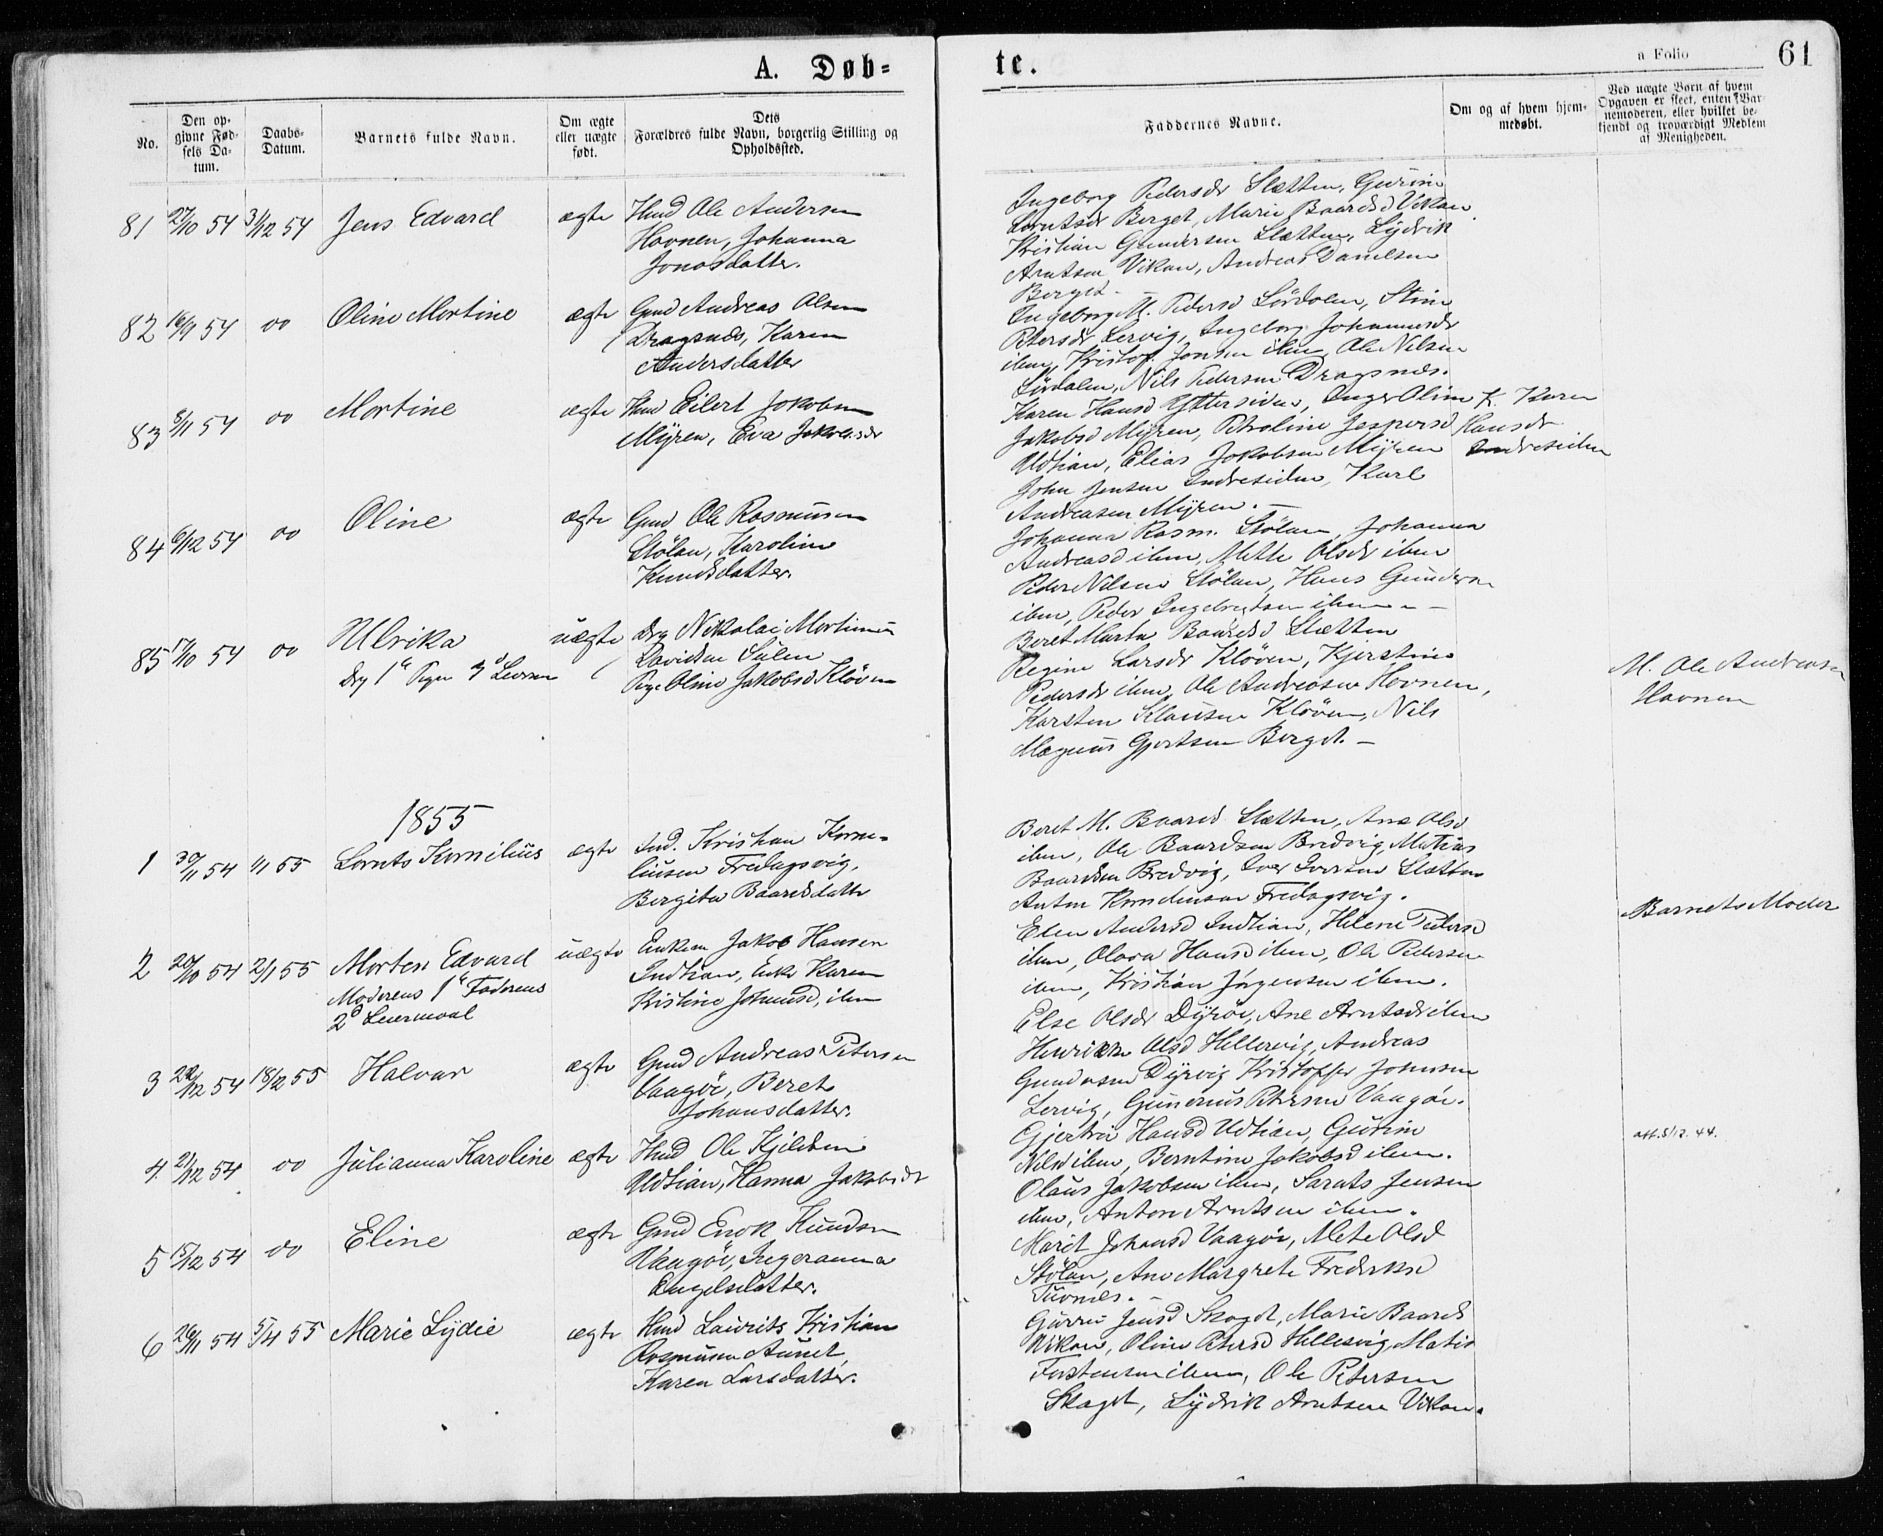 A. Døb=
te.
a Folio 61
No.
Den op-
givne Fød-
sels Da-
tum.
Daabs-
Datum.
Barnets fulde Navn.
Om ægte
eller uægte
født.
Dets
Forældres fulde Navn, borgerlig Stilling og
Opholdssted.
Faddernes Navne.
Om og af hvem hjem-
medøbt.
Ved uægte Børn af hvem
Opgaven er skeet, enten Bar-
nemoderen, eller hvilket be-
kjendt og troværdigt Medlem
af Menigheden.
81 27/10 54 31/12 54 Jens Edvard ægte Hmd Ole Andersen
Havnen, Johanna
Jonasdatter.
Ingeborg Pedersdr Slætten, Gurine
Lorntsdr Berget, Marie Baardsd Vikan
Kristian Gundersen Slætten, Lydrik
Arntsen Vikan, Andreas Danielsen
Berget.
82 16/9 54 oo Oline Mortine ægte Gmd Andreas Olsen
Dragsnæs, Karen
Andersdatter
Ingeborg M. Pedersd Sørdalen, Stine
Petersdr Lervig, Ingeborg Johannesdr
ibm, Kristof. Jonsen ibm, Ole Nilsen
Sørdalen, Nils Pedersen Dragsnæs.
83 8/11 54 oo Mortine ægte Hmd Eilert Jakobsen
Myren, Eva Jakobsdr
Karen Hansd Yttersiden, Inger Oline
Jakobsd Myren, Petroline Jespersd
Udtian, Elias Jakobsen Myren
John Jensen Indresiden, Karl
Andreasen Myren. —
K. Karen
Hansdr
Indresiden
84 6/12 54 oo Oline ægte Gmd Ole Rasmusen
Stølan, Karoline
Knudsdatter.
Johanna Rasm. Stølan, Johanna
Andreasd ibm, Mette Olsdr ibm
Peder Nilsen Stølan, Hans Gundersen
ibm, Peder Ingebrigtsen ibm. —
85 17/10 54 oo Ulrika uægte Drg Nikolai Mortinus
Davidsen Sulen
Pige Oline Jakobsd Kløven
Drg 1ste Pigen 3d Leierm
Beret Marta Baardsd Slætten
Regine Larsdr Kløven, Kjerstine
Pedersdr ibm, Ole Andreasen Havnen,
Karsten Klausen Kløven, Nils
Magnus Gjertsen Berget. —
M. Ole Andreasen
Havnen
1855
1 30/11 54 1/1 55 Lornts Kornilius ægte Ind. Kristian Korne-
liusen Fredagsvig,
Bergite Baardsdatter
Beret M. Baardsd Slætten, Ane Olsd
ibm, Ole Baardsen Bredvig, Matias
Baardsen Bredvig, Iver Iversen Slætten
Anton Korneliusen Fredagsvig.
2 20/10 54 2/1 55 Morten Edvard uægte Enkem Jakob Hansen
Indtian, Enke Karen
Kristine Johansd, ibm
Moderens 1ste Faderens
2d Leiermaal
Elen Andersd Indtian, Helene Petersd
ibm, Olava Hansd ibm, Ole Pedersen
ibm, Kristian Jørgensen ibm.
Barnets Moder
3 22/12 54 18/2 55 Halvar ægte Gmd Andreas Petersen
Vaagøi, Beret
Johansdatter.
Else Olsdr Dyrøi, Ane Arntsdr ibm
Henrikke Olsd Hellesvig, Andreas
Gundersen Dyrvig Kristoffer Johnsen
Lervig, Gunerius Petersen Vaagøi.
4. 21/12 54 oo Julianna Karoline ægte Hmd Ole Kjeldsen
Udtian, Hanna Jakobsdr
Gjertru Hansd Udtian, Gurine
Nilsd ibm, Berntine Jakobsd ibm.
Olaus Jakobsen ibm, Sarats Jensen
ibm, Anton Arntsen ibm.
att. 5/12. 44.
5 15/12 54 oo Eline ægte Gmd Enok Knudsen
Vaagøi, Ingeranna
Engelsdatter.
Marit Johansd Vaagøi, Mete Olsd
Stølan, Ane Margrete Frederiksd
Tuvnes. —
6 26/11 54 5/4 55 Marie Lydie ægte Hmd Laurits Kristian
Rasmusen Aunet,
Karen Larsdatter.
Gurru Jensd Skaget, Marie Baards
Vikan, Oline Petersd Hellesvig, Matis
Torstensen ibm, Ole Petersen
Skaget, Lydrik Arntsen Vikan.